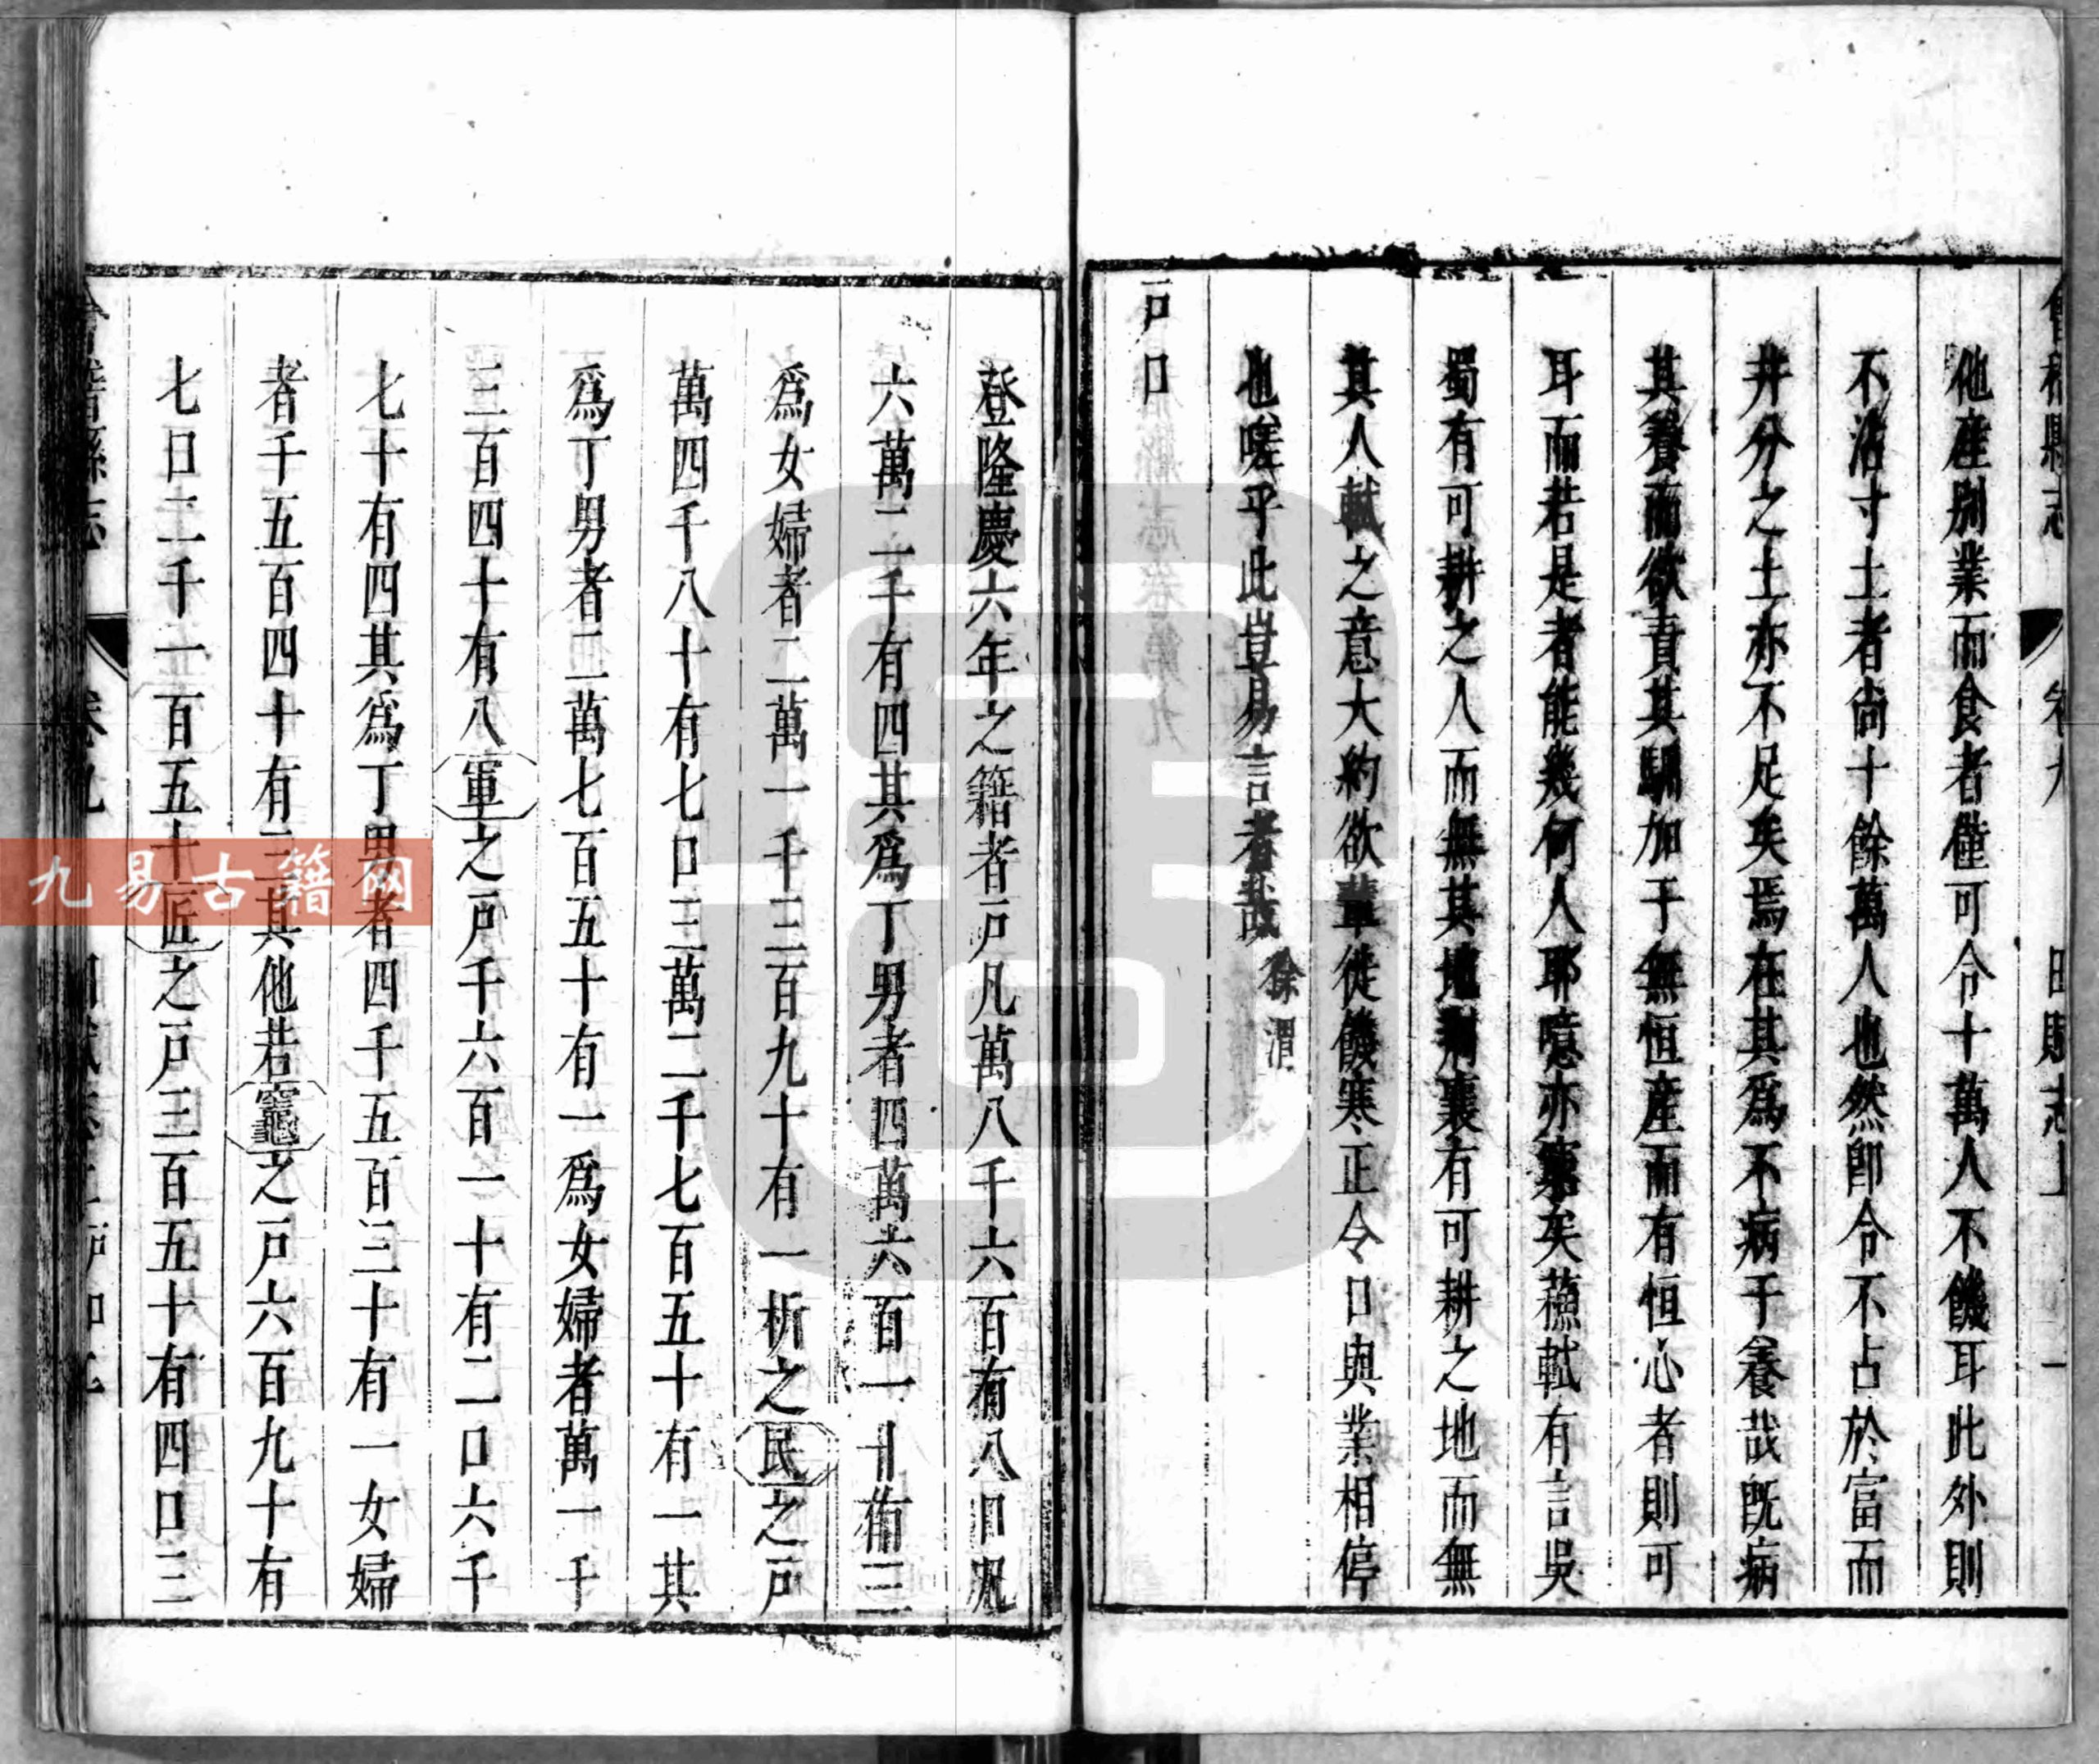 會稽縣志
卷九
田賦志上
一
他產別業而食者僅可令十萬人不饑耳此外則
不沾寸土者尚十餘萬人也然卽令不占於富而
井分之土亦不足矣焉在其爲不病于養哉旣病
其養而欲責其馴加于無恒產而有恒心者則可
耳而若是者能幾何人耶噫亦窮矣蘓軾有言吳
蜀有可耕之人而無其地荆襄有可耕之地而無
其人軾之意大約欲輦徙饑寒正令口與業相停
也嗟乎此豈易言者哉
徐渭
戶口
登隆慶六年之籍者戶凡萬八千六百有八口凡
六萬二千有四其爲丁男者四萬六百一十有三
爲女婦者二萬一千三百九十有一析之民之戶
萬四千八十有七口三萬二千七百五十有一其
爲丁男者二萬七百五十有一爲女婦者萬一千
三百四十有八軍之戶千六百一十有二口六千
七十有四其爲丁男者四千五百三十有一女婦
者千五百四十有三其他若竈之戶六百九十有
七口二千一百五十匠之戶三百五十有四口三
會稽縣志
卷九
戶口
九易古籍网